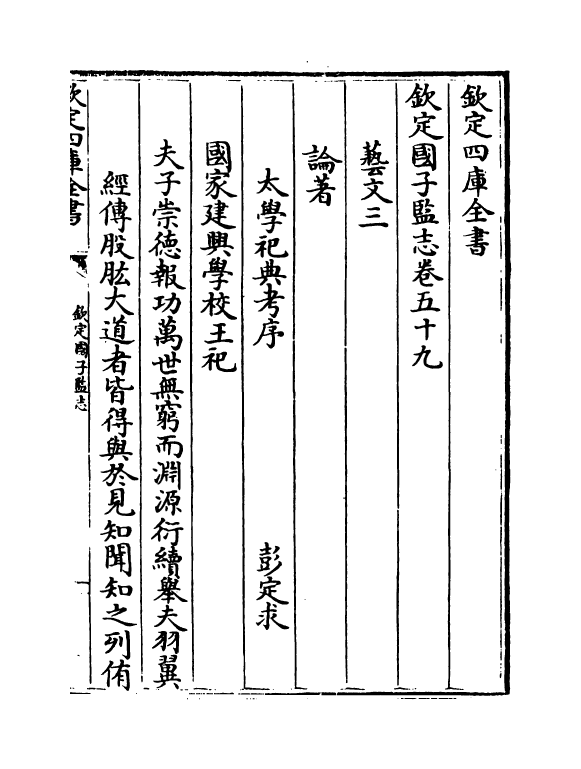 欽定四庫全書
欽定國子監志卷五十九
藝文三
論著
太學祀典考序 彭定求
國家建興學校王祀
夫子崇德報功萬世無窮而淵源衍續舉夫羽翼
經傳股肱大道者皆得與於見知聞知之列侑
欽定四庫全書 欽定國子監志 一